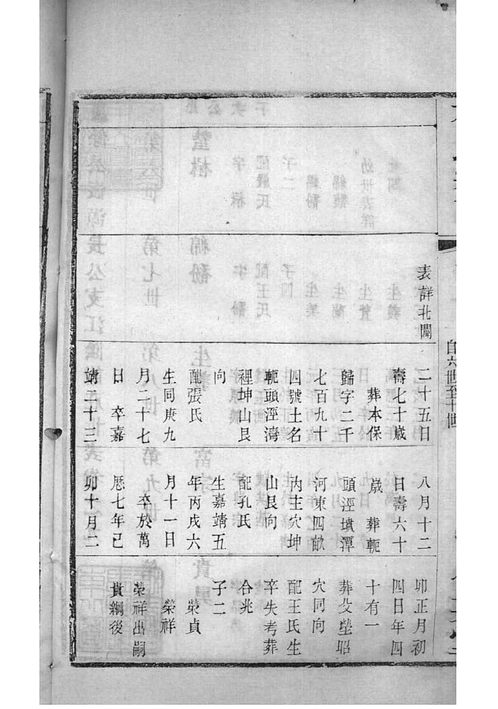 自六世至十世
表詳北
二十五日
壽七十歲
葬本保
歸字二千
七百九十
四號土名
軛頭涇濤
裡坤山艮
向
配張氏
生同庚九
月二十七
日 卒嘉
靖二十三
八月十二
日壽六十
歲 葬軛
頭涇墳潭
河東四畝
內主穴坤
山艮向
配孔氏
生嘉靖五
年丙戌六
月十一日
卒於萬
厯七年己
卯十月二
卯正月初
四日年四
十有一
葬父塋昭
穴同向
配王氏生
卒失考葬
合兆
子二
榮貞
榮祥
榮祥出嗣
貴綱後